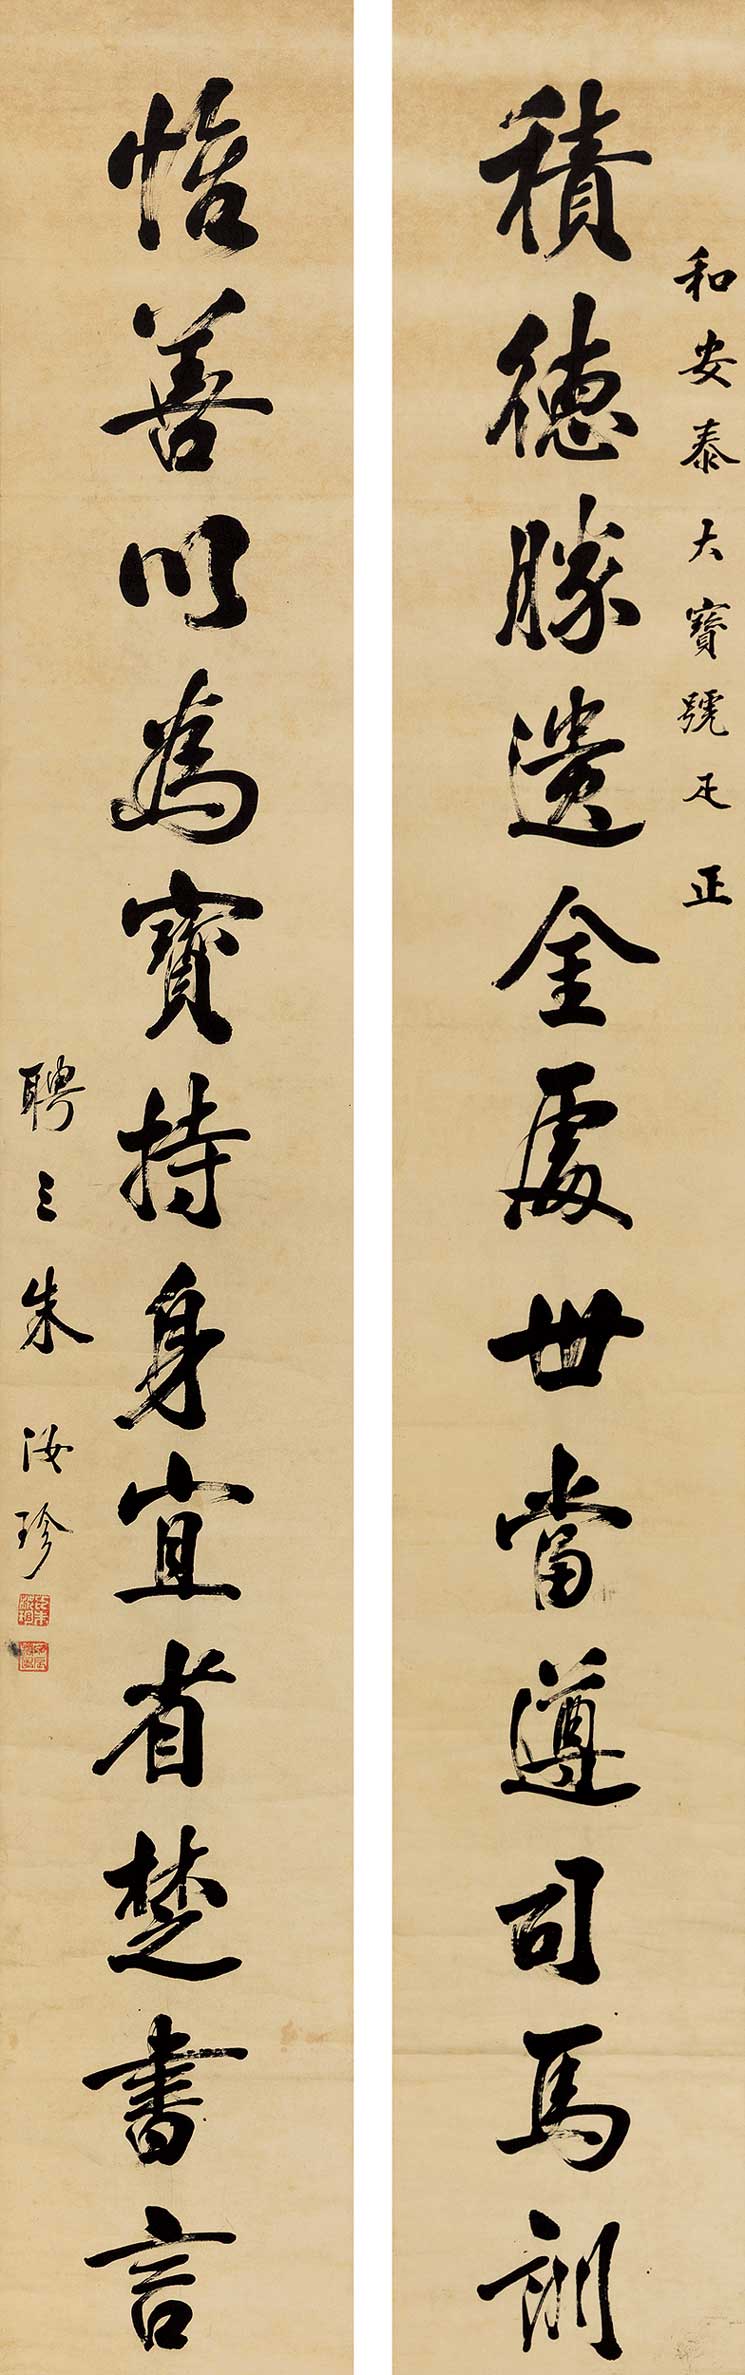 和安泰大寶號疋正
積德勝遺金處世當遵司馬訓
怡善以為寶持身宜省楚書言
聘三朱汝珍